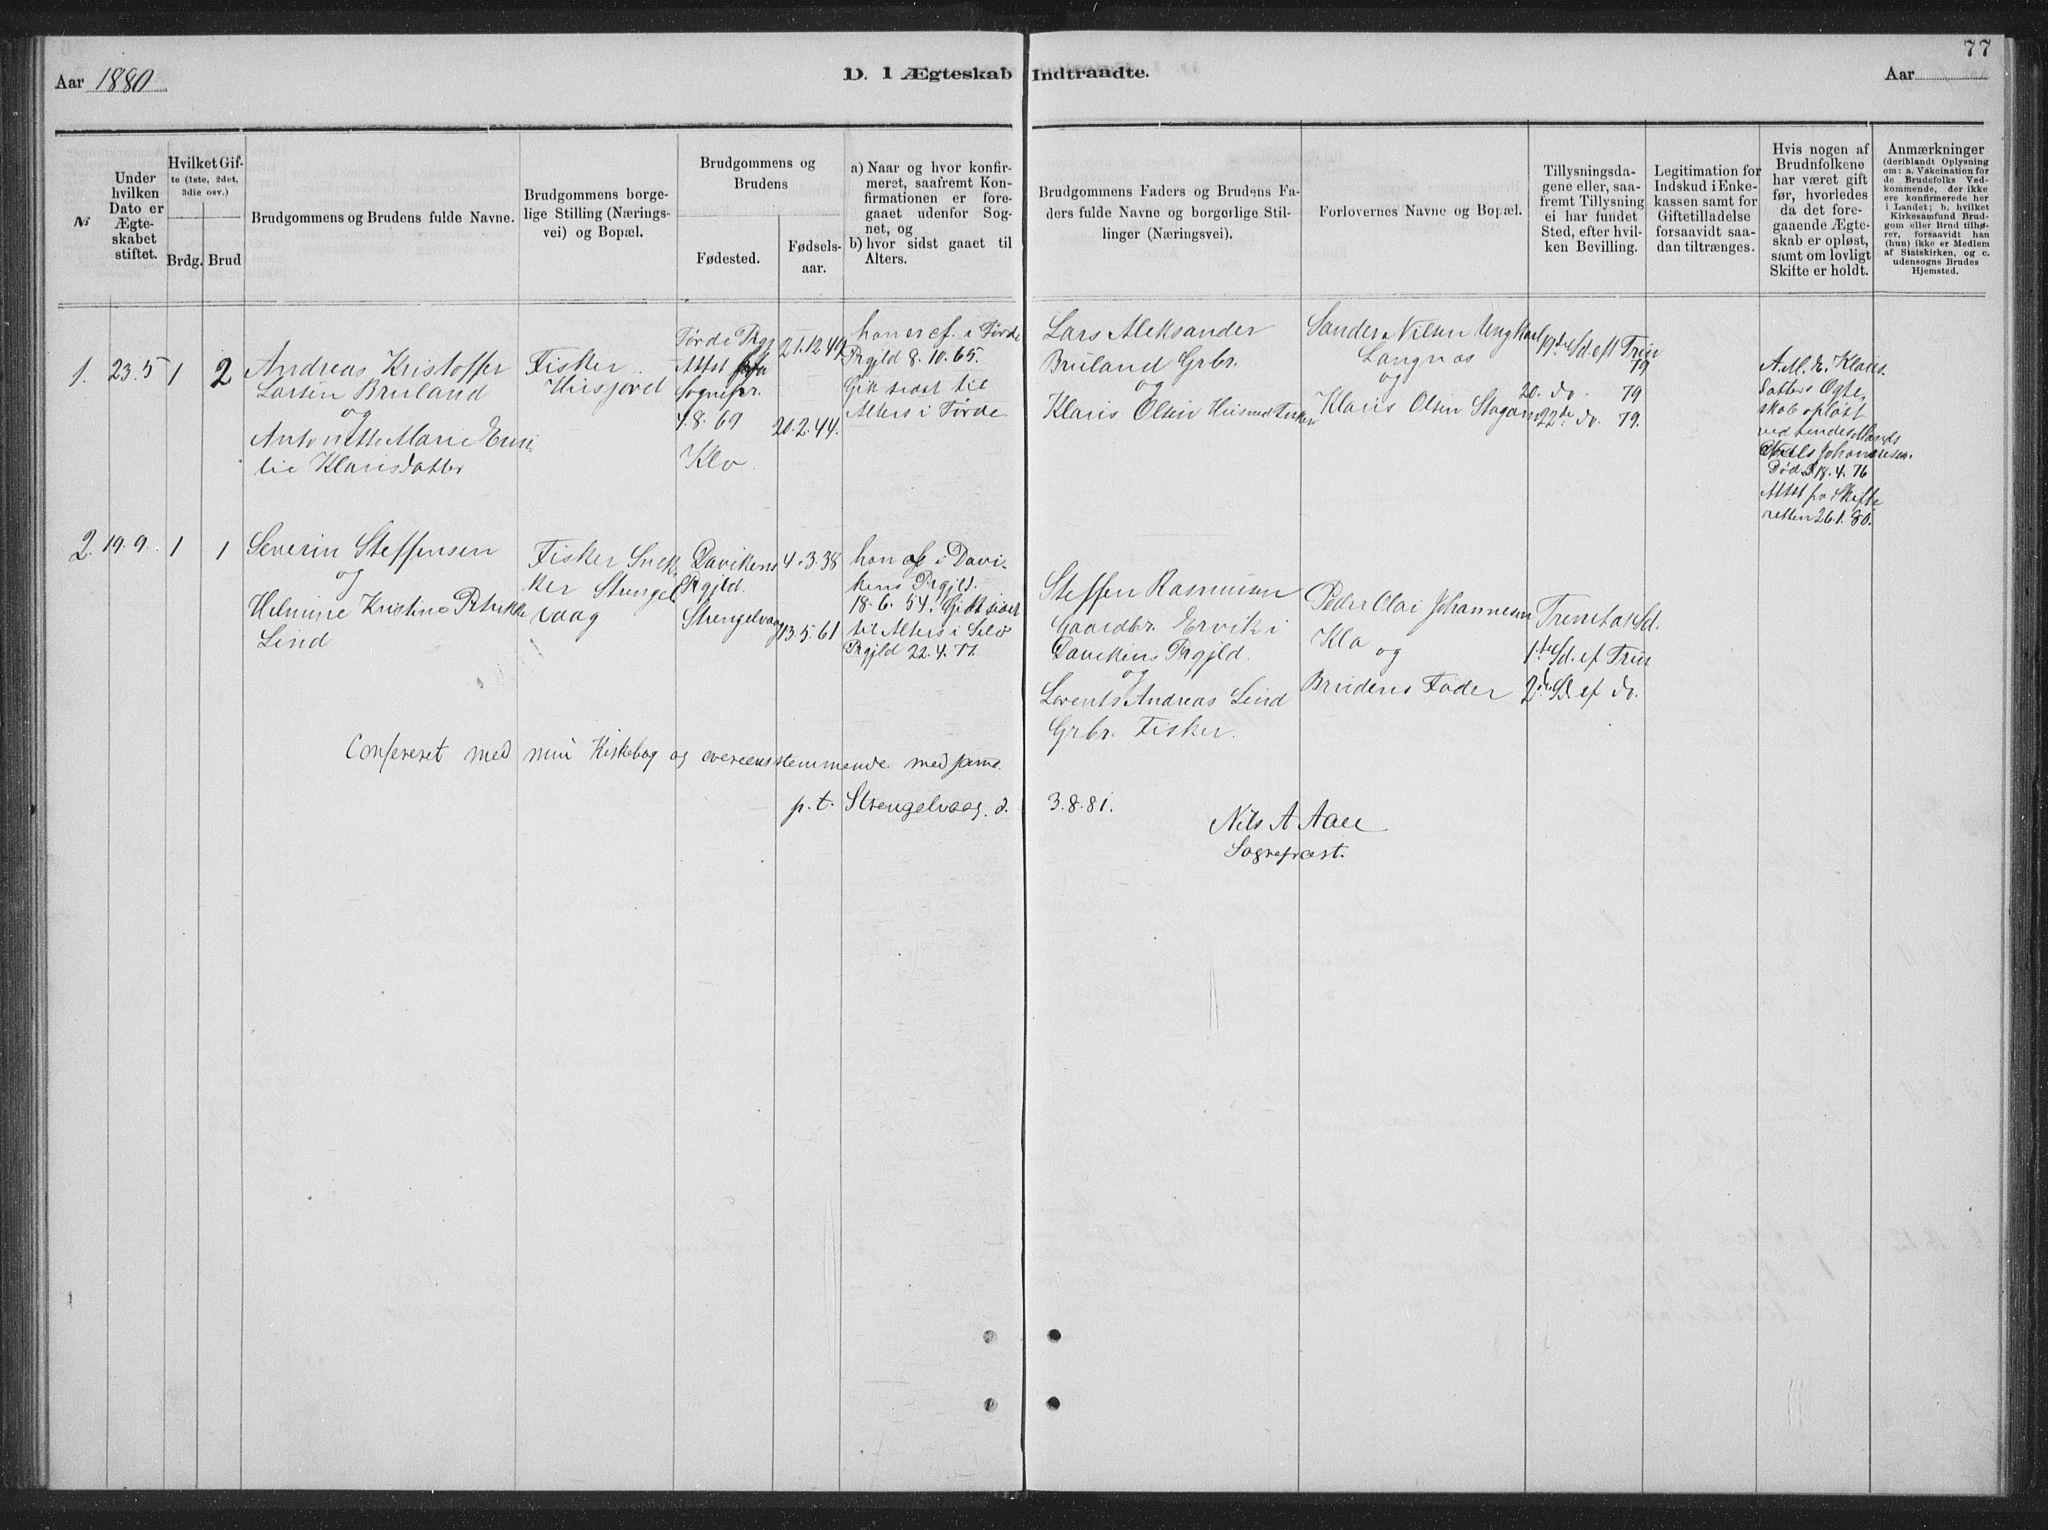 77
Aar 1880
D. I Ægteskab Indtraadte.
Aar
№
Under hvilken Dato er Ægteskabet stiftet.
Hvilket Gifte (1ste, 2det, 3die osv.)
Brdg.
Brud
Brudgommens og Brudens fulde Navne.
Brudgommens borgelige Stilling (Næringsvei) og Bopæl.
Brudgommens og Brudens
Fødested.
Fødselsaar.
a) Naar og hvor konfirmeret, saafremt Konfirmationen er foregaaet udenfor Sognet, og
b) hvor sidst gaaet til Alters.
Brudgommens Faders og Brudens Faders fulde Navne og borgerlige Stillinger (Næringsvei).
Forlovernes Navne og Bopæl.
Tillysningsdagene eller, saafremt Tillysning ei har fundet Sted, efter hvilken Bevilling.
Legitimation for Indskud i Enkekassen samt for Giftetilladelse forsaavidt saadan tiltrænges.
Hvis nogen af Brudnfolkene har været gift før, hvorledes da det foregaaende Ægteskab er opløst, samt om lovligt Skifte er holdt.
Anmærkninger
(deriblandt Oplysning om: a. Vakcination for de Brudefolks Vedkommende, der ikke ere konfirmerede her i Landet; b. hvilket Kirkesamfund Brudgom eller Brud tilhører, forsaavidt han (hun) ikke er Medlem af Statskirken, og c. udensogns Brudes Hjemsted.
1. 23.5 1 2
Andreas Kristoffer
Larsen Bruland
og
Antonette Marie Emi-
lie Klarisdatter
Fisker
Husjord
Førde Prgj
Attst fra
Sognepr.
4.8.69
Klo
21.12.49
20.2.44.
han er cf. i Førde
Prgjld 8.10.65.
Gik sidst til
Alters i Førde.
Lars Aleksander
Bruland Grbr.
og
Klaris Olsen Husmd Fisker
Sander Nilsen Ungkarl
Langnes
og
Klaris Olsen
19de Sd. eft Trin
79
20. do. 79
22de do. 79.
A. M. E. Klaris-
datters Ægte
skab opløst
ved hendes Mands
Johannesen
Død 18.4.76
Attst fra Skifte
retten 26.1.80.
2. 19.9. 1 1
Severin Steffensen
og
Helmine Kristine Petrikke
Lind
Fisker Snek-
ker Strengel
vaag
Davikens
Prgjld.
Strengelvaag
4.3.38
13.5.61
han cf i Davi-
kens Prgjld.
18.6.54. Gik sidst
til Alters i
Prgjld 22.4.77.
Steffen Rasmusen
Gaardbr. Ervik i
Davikens Prgjld.
og
Lorents Andreas Lind
Grbr. Fisker.
Peder Olai Johannesen
Klo
og
Brudens Fader
Trinetas Sd.
1ste Sd. ef Trin
2den Sd. ef do.
Confereret med min Kirkebog og overeensstemmende med samme.
p.t. Strengelvaag, d. 3.8.81.
Nils A Aall
Sognepræst.